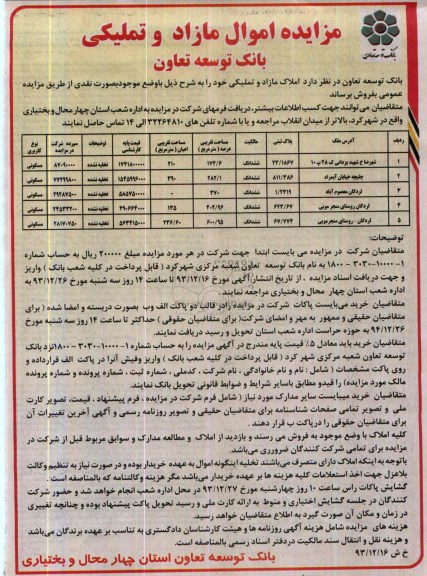 مزایده اموال مازاد و تملیکی
بانک توسعه تعاون
بانک توسعه تعاون در نظر دارد املاک مازاد و تملیکی خود را به شرح ذیل باوضع موجودبصورت نقدی از طریق مزایده
عمومی بفروش برساند
متقاضیان می توانند جهت کسب اطلاعات بیشتر، دریافت فرمهای شرکت در مزایده به اداره شعب استان چهار محال و بختیاری
واقع در شهرکرد، بالاتر از میدان انقلاب مراجعه و یا با شماره تلفن های ۳۲۲۶۴۸۱۰ الی ۱۴ تماس حاصل نمایند
ردیف آدرس ملک پلاک ثبتی مالکیت مساحت تقریبی عرصه (مترمربع) مساحت تقریبی اعیان (مترمربع) قیمت پایه کارشناسی توضیحات سپرده شرکت در مزایده نوع کاربری
۱ ششدانگ ۱۷۴/۶ ۲۱۰ تخلیه نشده مسکونی
۲ ششدانگ ۲۸۲/۱ ۳۹۰ تخلیه نشده مسکونی
۳ لردگان معصوم آباد ۱/۲۳۱۹ ششدانگ ۳۷۰ ۰ تخلیه نشده مسکونی
۴ لردگان روستای منجرمویی ششدانگ ۱۳۵ تخلیه نشده مسکونی
۵ لردگان- روستای منجرمویی ۶۷/۷۷۴ ششدانگ ۶۰۰/۹۵ ۲۳۶/۶۰ تخلیه نشده مسکونی
توضیحات:
متقاضیان شرکت در مزایده می بایست ابتدا جهت شرکت در هر مورد مزایده مبلغ ۲۰۰۰۰۰ ریال به حساب شماره
۱-۱۰۰۰۰-۳۰۳۰-۱۸۰۰ به نام بانک توسعه تعاون شعبه مرکزی شهرکرد ( قابل پرداخت در کلیه شعب بانک ) واریز
و جهت دریافت اسناد مزایده ، از تاریخ انتشار آگهی مورخ ۹۳/۱۲/۱۶ تا ساعت ۱۴ روز سه شنبه مورخ ۹۳/۱۲/۲۶ به
اداره شعب استان چهار محال و بختیاری مراجعه نمایند.
متقاضیان خرید می‌بایست پاکات شرکت در مزایده رادر قالب دو پاکت الف وب بصورت دربسته و امضا شده ( برای
متقاضیان حقیقی و ممهور به مهر و امضای شرکت( برای متقاضیان حقوقی ) حداکثر تا ساعت ۱۴ روز سه شنبه مورخ
۹۳/۱۲/۲۶ به حوزه حراست اداره شعب استان تحویل و رسید دریافت نمایند.
متقاضیان خرید باید معادل ۵٪ قیمت پایه مندرج در آگهی مزایده را به حساب شماره ۱-۱۰۰۰۰-۳۰۳۰-۱۸۰۰نزد بانک
توسعه تعاون شعبه مرکزی شهر کرد ( قابل پرداخت در کلیه شعب بانک ) واریز وفیش آنرا در پاکت الف قرارداده و
روی پاکت مشخصات ( شامل : نام و نام خانوادگی ، نام شرکت ، کدملی ، شماره ثبت ، شماره پرونده و شماره پرونده
مالک مورد مزایده) را قیدو مطابق باسایر شرایط و ضوابط قانونی تحویل بانک نمایند.
متقاضیان خرید میبایست سایر مدارک مورد نیاز ( شامل فرم شرکت در مزایده ، فرم پیشنهاد ، قیمت، تصویر کارت
ملی و تصویر تمامی صفحات شناسنامه برای متقاضیان حقیقی و تصویر روزنامه رسمی و آگهی آخرین تغییرات آن
برای متقاضیان حقوقی را درپاکت ب قرار دهند .
کلیه املاک با وضع موجود به فروش می رسند و بازدید از املاک و مطالعه مدارک و سوابق مربوط قبل از شرکت در
مزایده برای تمامی شرکت کنندگان ضروری می‌باشد.
باتوجه به اینکه املاک دارای متصرف می‌باشند تخلیه اینگونه اموال به عهده خریدار بوده و در صورت نیاز به تنظیم وکالت
بلاعزل جهت اخذ استعلامات کلیه هزینه ها بر عهده خریدار می‌باشد مگر هزینه وکالتنامه که بالمناصفه است .
گشایش پاکات راس ساعت ۱۰ روز چهارشنبه مورخ ۹۳/۱۲/۲۷ در محل اداره شعب انجام خواهد شد و حضور شرکت
کنندگان در جلسه گشایش اختیاری و منوط به ارائه کارت ملی و رسید تحویل پاکت پیشنهاد بوده و چنانچه تغییری
در زمان و مکان آن صورت گیرد به اطلاع متقاضیان خواهد رسید
هزینه های مزایده شامل هزینه آگهی روزنامه ها و هیئت کارشناسان دادگستری به تناسب بر عهده برندگان می‌باشد
و هزینه نقل و انتقال سند مالکیت دردفتر اسناد رسمی بالمناصفه است.
خ ش ۹۳/۱۲/۱۶ بانک توسعه تعاون استان چهار محال و بختیاری